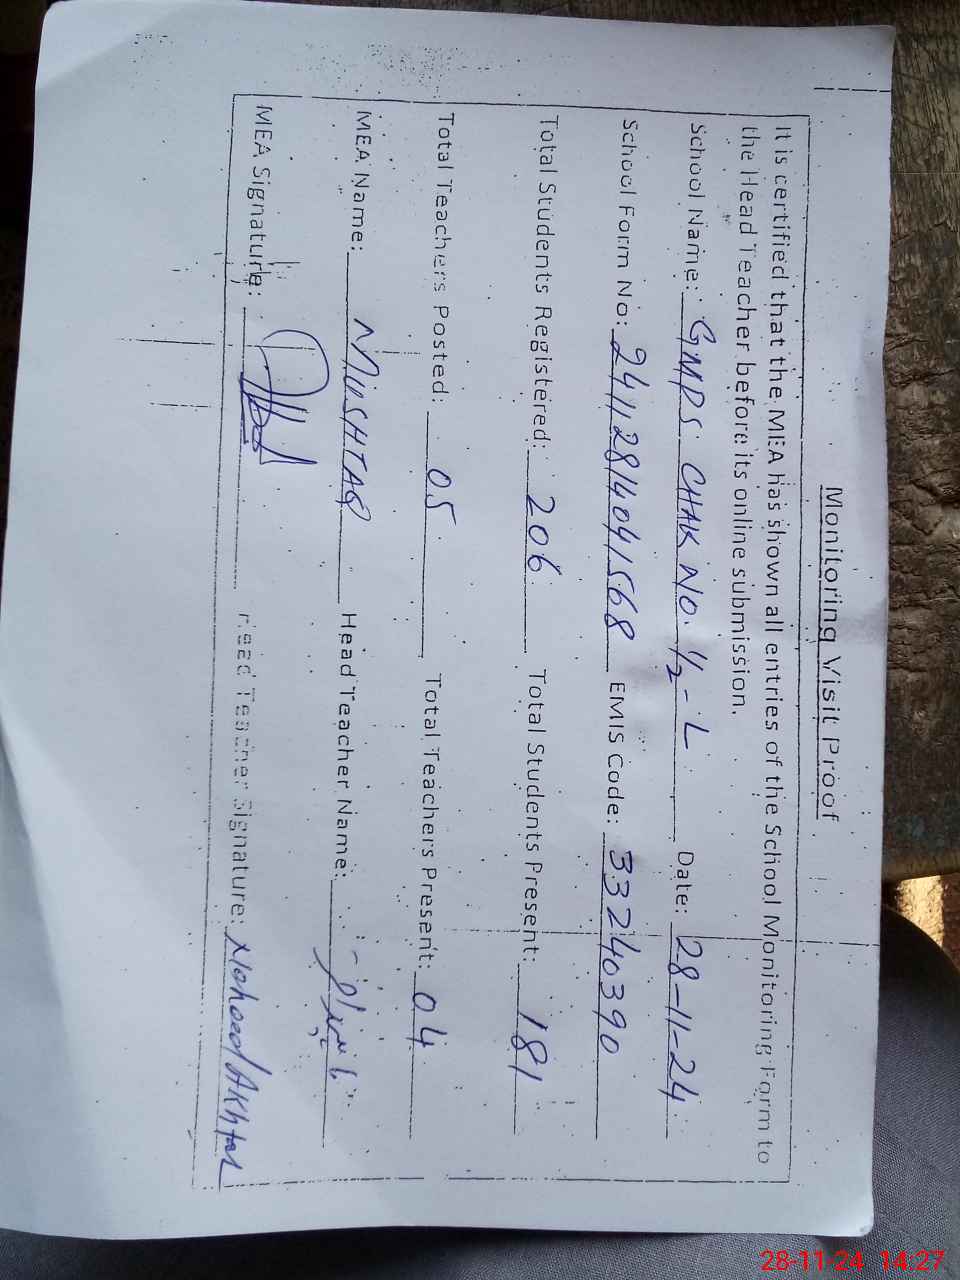 Monitoring Visit Proof
It is certified that the MEA has shown all entries of the School Monitoring Form to
the Head Teacher before its online submission.
School Name: GMPS CHAK NO. 1/2-L Date: 28-11-24
School Form No: 24112814041568 EMIS Code: 33240390
Total Students Registered: 206 Total Students Present: 181
Total Teachers Posted: 05 Total Teachers Present: 04
MEA Name: MUSHTAQ Head Teacher Name:
MEA Signature: Head Teacher Signature: Akhtar
28-11-24 14:27